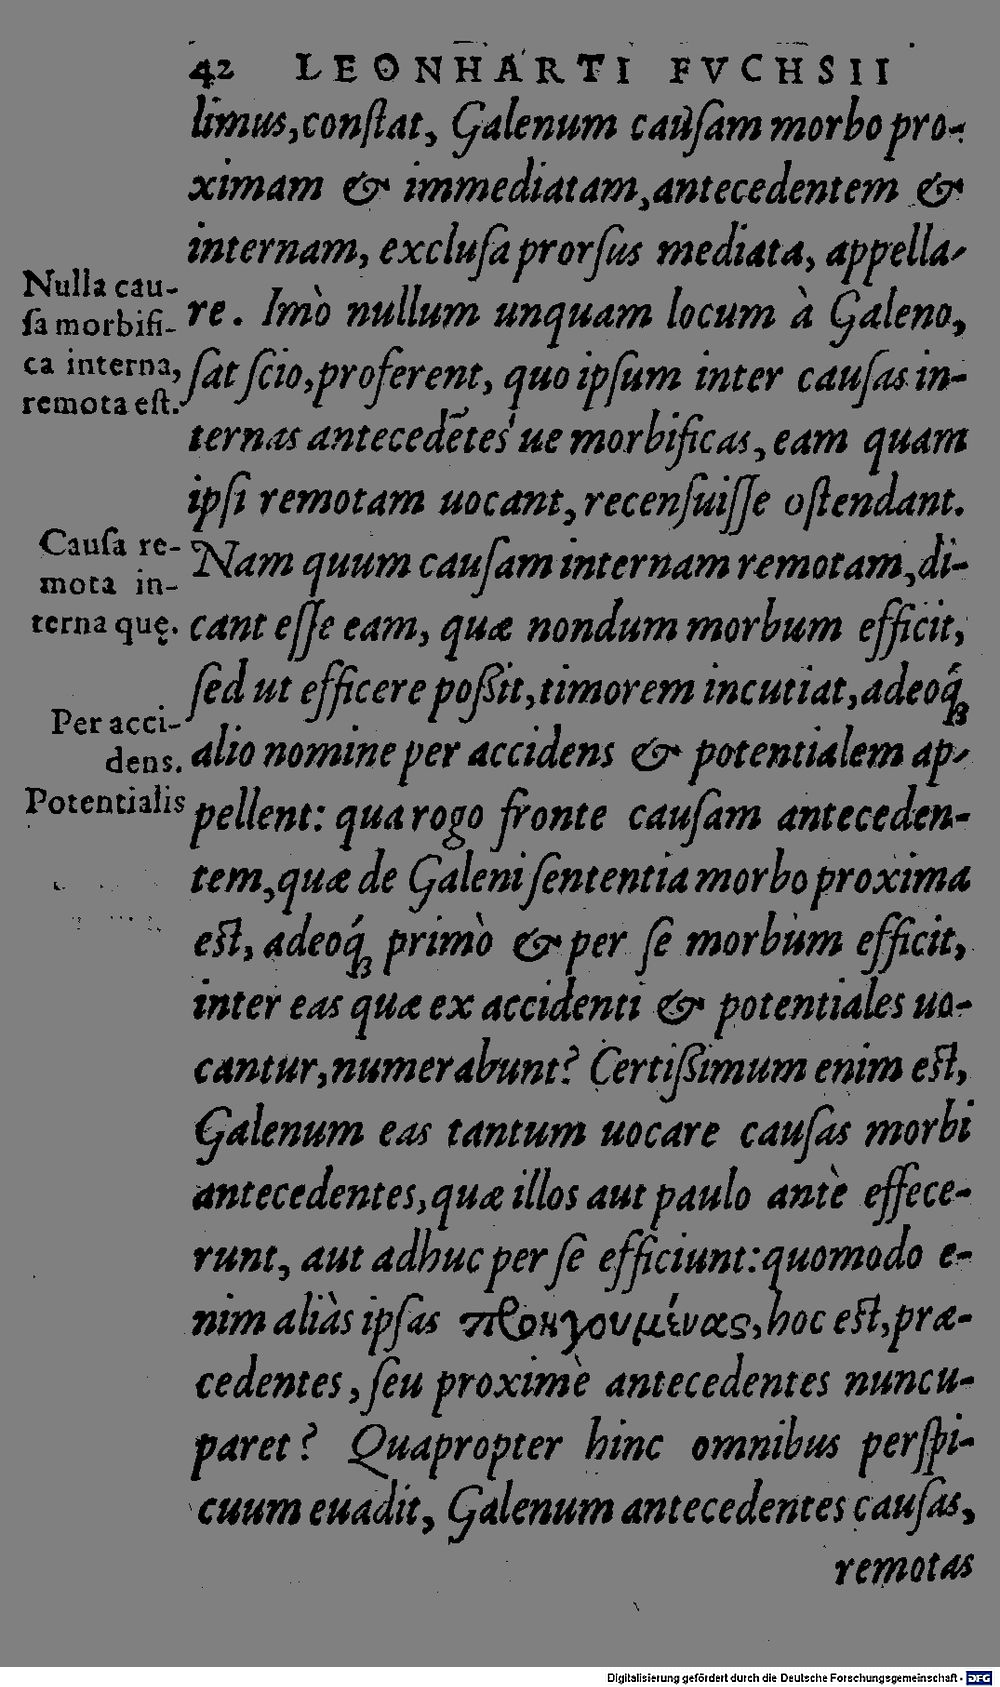 42 LEONHARTI FVCHSII
limus, constat, Galenum causam morbo pro-
ximam & immediatam, antecedentem &
internam, exclusa prorsus mediata, appella-
re. Imò nullum unquam locum à Galeno,
sat scio, proferent, quo ipsum inter causas in-
ternas antecedẽtes'ue morbificas, eam quam
ipsi remotam uocant, recensuisse ostendant.
Nam quum causam internam remotam, di-
cant esse eam, quæ nondum morbum efficit,
sed ut efficere poßit, timorem incutiat, adeoq́;
alio nomine per accidens & potentialem ap-
pellent: qua rogo fronte causam anteceden-
tem, quæ de Galeni sententia morbo proxima
est, adeoq́; primò & per se morbum efficit,
inter eas quæ ex accidenti & potentiales uo-
cantur, numerabunt? Certißimum enim est,
Galenum eas tantum uocare causas morbi
antecedentes, quæ illos aut paulo antè effece-
runt, aut adhuc per se efficiunt: quomodo e-
nim aliàs ipsas προηγουμένας, hoc est, præ-
cedentes, seu proximè antecedentes nuncu-
paret? Quapropter hinc omnibus perspi-
cuum euadit, Galenum antecedentes causas,
remotas
Nulla cau-
sa morbifi-
ca interna,
remota est.
Causa re-
mota in-
terna quę.
Per acci-
dens.
Potentialis
Digitalisierung gefördert durch die Deutsche Forschungsgemeinschaft - DFG